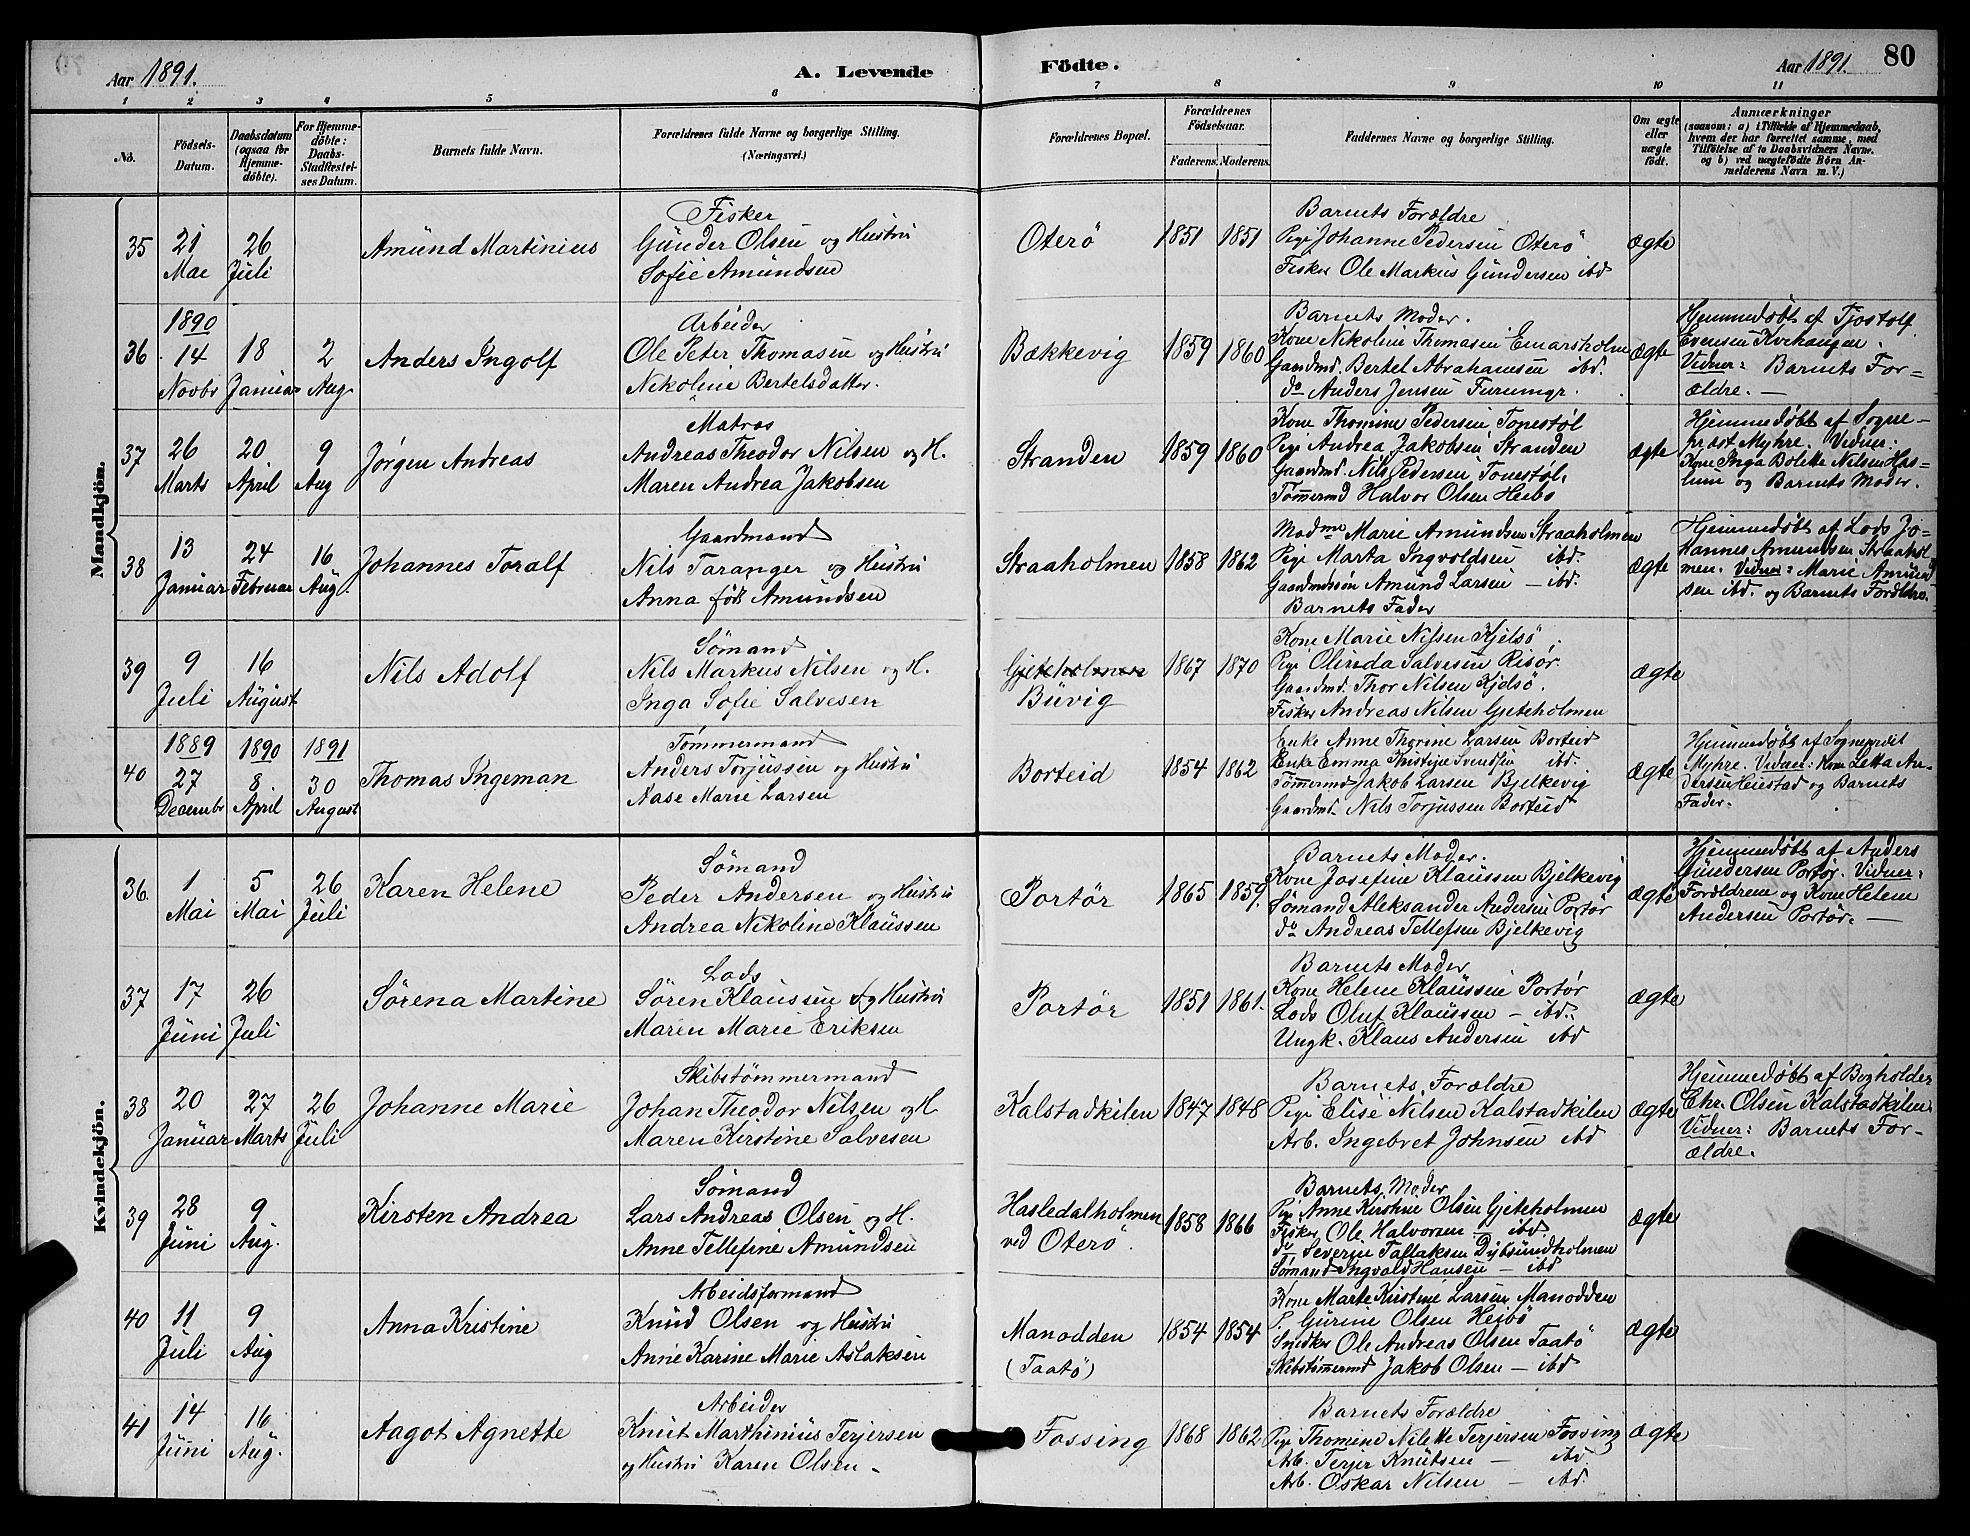 Aar 1891.
A. Levende Födte.
Aar 1891.
80
1 2 3 4 5 6 7 8 9 10 11
No.
Födsels-Datum.
Daabsdatum (ogsaa for Hjemme-döbte).
For Hjemme-döbte: Daabs-Stadfæstel-ses Datum.
Barnets fulde Navn.
Forældrenes fulde Navne og borgerlige Stilling. (Næringsvei.)
Forældrenes Bopæl.
Forældrenes Födselsaar.
Faderens. Moderens.
Faddernes Navne og borgerlige Stilling.
Om ægte eller uægte födt.
Anmærkninger
(saasom: a) i Tilfælde af Hjemmedaab, hvem der har forrettet samme, med Tilföielse af to Daabsvidners Navne. og b) ved uægtefödte Börn An-melderens Navn m. V.)
Mandkjön.
35
21 Mai
26 Juli
Amund Martinius
Fisker
Gunder Olsen og Hustru
Sofie Amundsen
Oterö
1851 1851
Barnets Forældre
Pige Johanne Pedersen Oterö
Fisker Ole Markus Gundersen ibd
ægte
36
1890
14 Novbr
18 Januar
2 Aug
Anders Ingolf
Arbeider
Ole Peter Thomasen og Hustru
Nikoline Bertelsdatter.
Bækkevig
1859 1860
Barnets Moder.
Kone Nikoline Thomasen Emarsholm
Gaardmd. Bertel Abrahamsen ibd.
do Anders Jensen Furumyr.
ægte
Hjemmedøbt af Tjostolf
Evensen Kvihaugen.
Vidner: Barnets For=
ældre. —
37
26 Marts
20 April
9 Aug
Jørgen Andreas
Matros
Andreas Theodor Nilsen og H.
Maren Andrea Jakobsen
Stranden
1859 1860
Kone Thomine Pedersen Tonestøl
Pige Andrea Jakobsen Stranden
Gaardmd. Nils Pedersen Tonestøl.
Tømmermd Halvor Olsen Heibø
ægte
Hjemmedøbt af Sogne=
præst Myhre. Vidner:
Kone Inga Bolette Nilsen Has=
lum og Barnets Moder.
38
13 Januar
24 Februar
16 Aug.
Johannes Toralf
Gaardmand
Nils Taranger og Hustru
Anna født Amundsen
Straaholmen
1858 1862
Madme Marie Amundsen Straaholmen
Pige Marta Ingvoldsen ibd.
Gaardmdssøn Amund Larsen — ibd.
Barnets Fader
ægte
Hjemmedøbt af Lods Jo=
hannes Amundsen Straahol=
men. Vidner: Marie Amund
sen ibd. og Barnets Forældre.
39
9 Juli
16 August
Nils Adolf
Sømand
Nils Markus Nilsen og H.
Inga Sofie Salvesen
Gjeteholmen
Buvig
1867 1870
Kone Marie Nilsen Kjelsö.
Pige Olinda Salvesen Risör.
Gaardmd. Thor Nilsen Kjelsö.
Fisker Andreas Nilsen Gjeteholmen
ægte
40
1889
27 Decembr
1890
8 April
1891
30 August
Thomas Ingeman
Tømmermand
Anders Torjussen og Hustru
Aase Marie Larsen
Borteid
1854 1862
Enke Anne Thorine Larsen Borteid
Enke Emma Kristine Svendsen ibd.
Tömmermd Jakob Larsen Bjelkevig
Gaardmd. Nils Torjussen Borteid
ægte
Hjemmedøbt af Sognepræst
Myhre. Vidner: Kone Letta An=
dersen Heiestad og Barnets
Fader.
Kvindekjön.
36.
1 Mai
5 Mai
26 Juli
Karen Helene
Sömand
Peder Andersen og Hustru
Andrea Nikoline Klaussen
Portör
1865 1859.
Barnets Moder.
Kone Josefine Klaussen Bjelkevig
Sömand Aleksander Andersen Portör
do Andreas Tellefsen Bjelkevig
ægte
Hjemmedøbt af Anders
Gundersen Portör. Vidner:
Forældrene og Kone Helene
Andersen Portör. —
37
17 Juni
26 Juli
Sörena Martine
Lods
Sören Klaussen og Hustru
Maren Marie Eriksen
Portör
1851 1861.
Barnets Moder
Kone Helene Klaussen Portör
Lods Oluf Klaussen — ibd.
Ungk. Klaus Andersen ibd
ægte
38
20 Januar
27 Marts
26 Juli
Johanne Marie
Skibstömmermand
Johan Theodor Nilsen og H
Maren Kirstine Salvesen
Kalstadkilen
1847 1848
Barnets Forældre
Pige Elise Nilsen Kalstadkilen
Arb. Ingebret Johnsen ibd
ægte
Hjemmedøbt af Bogholder
Chr. Olsen Kalstadkilen
Vidner: Barnets For=
ældre.
39
28 Juni
9 Aug.
Kirsten Andrea
Sømand
Lars Andreas Olsen og H.
Anne Tellefine Amundsen
Hasledalholmen
ved Oterö.
1858 1866
Barnets Moder
Pige Anne Kirstine Olsen Gjeteholmen
Fisker Ole Halvorsen — ibd.
do Severin Tallaksen Dybsundholmen
Sømand Ingvald Hansen — ibd
ægte
40
11 Juli
9 Aug
Anna Kristine
Arbeidsformand
Knud Olsen og Hustru
Anne Karine Marie Aslaksen
Manodden
(Taatö)
1854 1854
Kone Marte Kirstine Larsen Manodden
P. Gurine Olsen Heibö
Snedker Ole Andreas Olsen Taatö
Skibstömmermd Jakob Olsen — ibd
ægte
41
14 Juni
16 Aug.
Aagot Agnette
Arbeider
Knut Marthinius Terjersen
og Hustru Karen Olsen —
Fossing
1868 1862
Barnets Forældre
Pige Thomine Nilette Terjersen Fossing
Arb. Terjer Knutsen — ibd.
Arb. Oskar Nilsen — ibd.
ægte